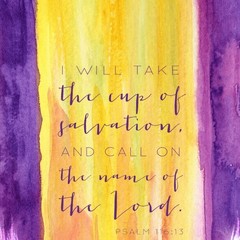 I WILL TAKE
the cup of
salvation,
AND CALL ON
the name of
the Lord.
PSALM 116:13